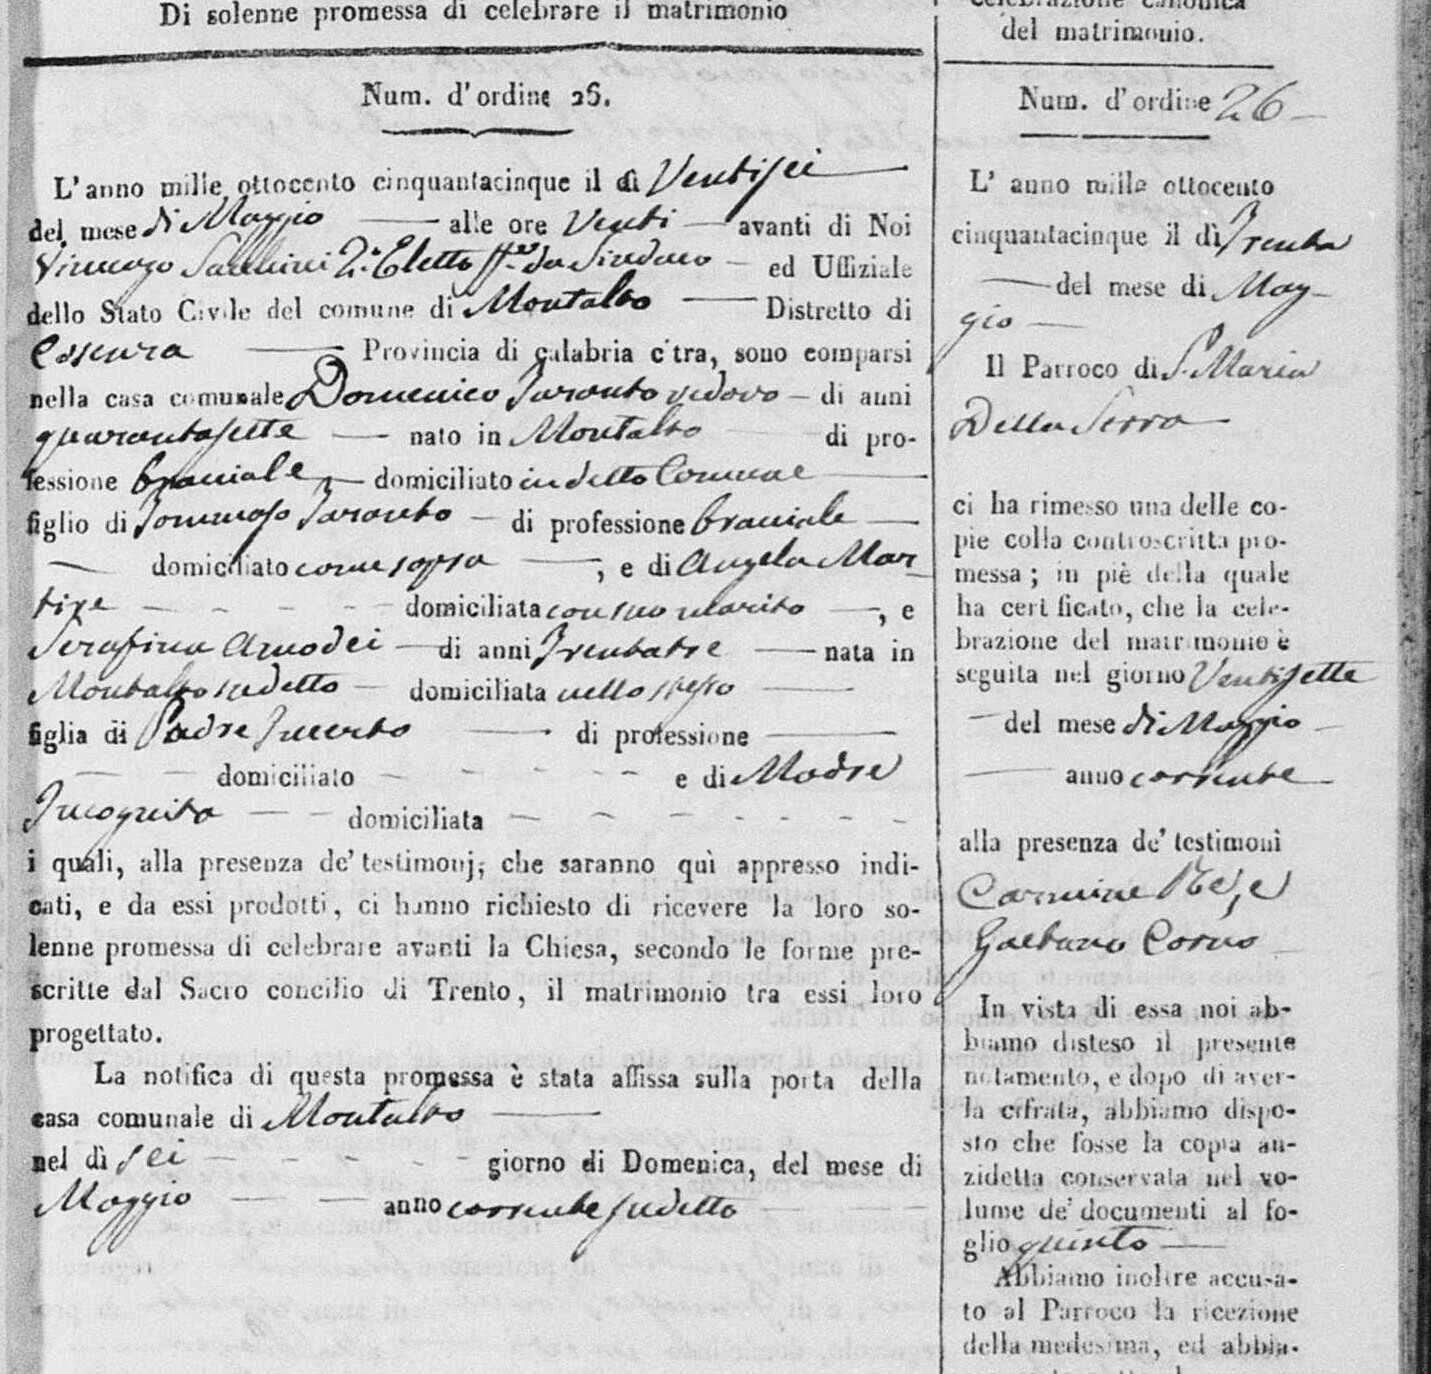 Di solenne promessa di celebrare il matrimonio
Num. d'ordine 26.
L'anno mille ottocento cinquantacinque il di Ventisei
del mese di Maggio alle ore Venti avanti di Noi
Vincenzo 2.° Eletto ff. da Sindaco ed Uffiziale
dello Stato Civile del comune di Montalto Distretto di
Cosenza Provincia di calabria citra, sono comparsi
nella casa comunale Domenico Taranto vedovo di anni
quarantasette nato in Montalto di pro-
fessione braciale domiciliato in detto Comune
figlio di Tommaso Taranto di professione braciale
domiciliato come sopra, e di Angela Mar
tire domiciliata con suo marito, e
Serafina Amodei di anni Trentatre nata in
Montalto sudetto domiciliata nello stesso
figlia di Padre Incerto di professione
domiciliato e di Madre
Incognita domiciliata
i quali, alla presenza de' testimonj, che saranno quì appresso indi-
cati, e da essi prodotti, ci hanno richiesto di ricevere la loro so-
lenne promessa di celebrare avanti la Chiesa, secondo le forme pre-
scritte dal Sacro concilio di Trento, il matrimonio tra essi loro
progettato.
La notifica di questa promessa è stata affissa sulla porta della
casa comunale di Montalto
nel dì sei giorno di Domenica, del mese di
Maggio anno corrente sudetto
celebrazione canonica
del matrimonio.
Num. d'ordine 26
L' anno mille ottocento
cinquantacinque il dì Trenta
del mese di Mag-
gio
Il Parroco di S. Maria
Della Serra
ci ha rimesso una delle co-
pie colla controscritta pro-
messa; in piè della quale
ha certificato, che la cele-
brazione del matrimonio è
seguita nel giorno Ventisette
del mese di Maggio
anno corrente
alla presenza de' testimoni
Carmine Re, e
Gaetano Corno
In vista di essa noi ab-
biamo disteso il presente
notamento, e dopo di aver-
la cifrata, abbiamo dispo-
sto che fosse la copia an-
zidetta conservata nel vo-
lume de' documenti al fo-
glio quinto
Abbiamo inoltre accusa-
to al Parroco la ricezione
della medesima, ed abbia-